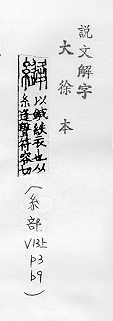 説文解字
大徐本
縫 以鍼紩衣也从
糸逢聲符容切
(糸部
V13上
p3
b9)